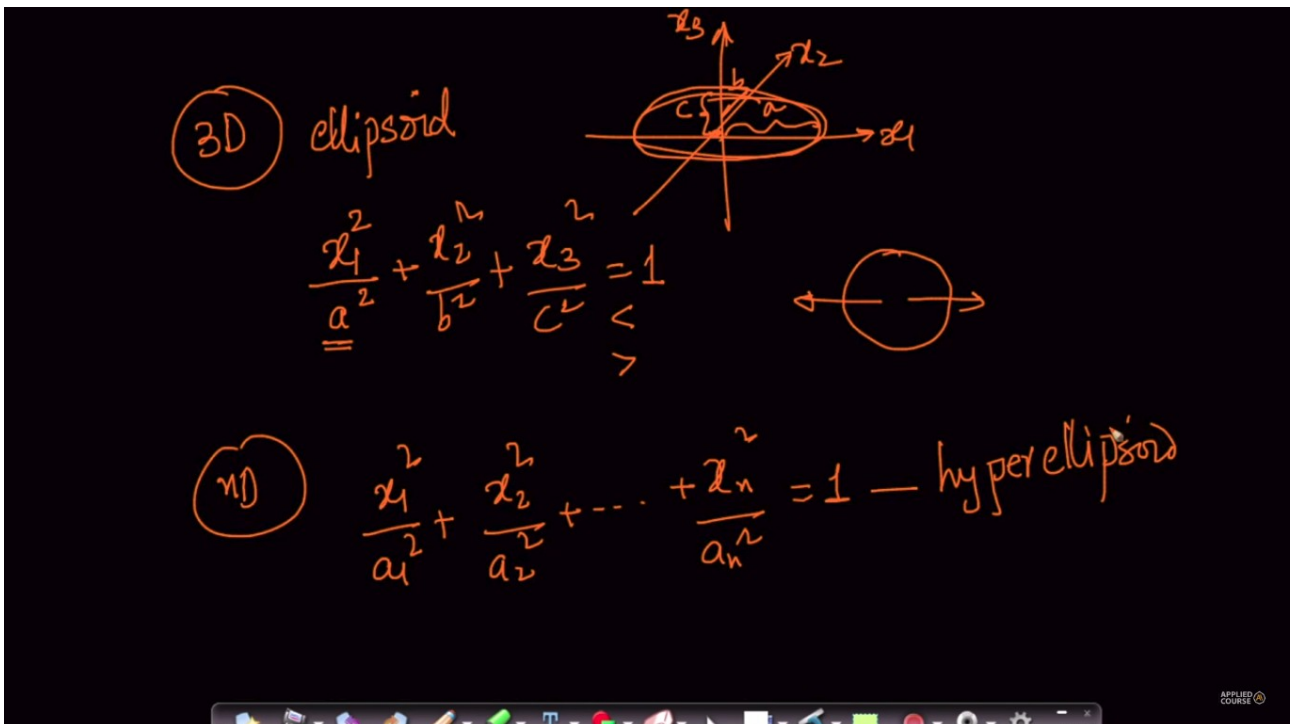 x3
x2
3D ellipsoid
c { b a
x1
x1²/a² + x2²/b² + x3²/c² = 1
<
>
nD x1²/a1² + x2²/a2² + ---- + xn²/an² = 1 — hyperellipsoid
APPLIED
COURSE